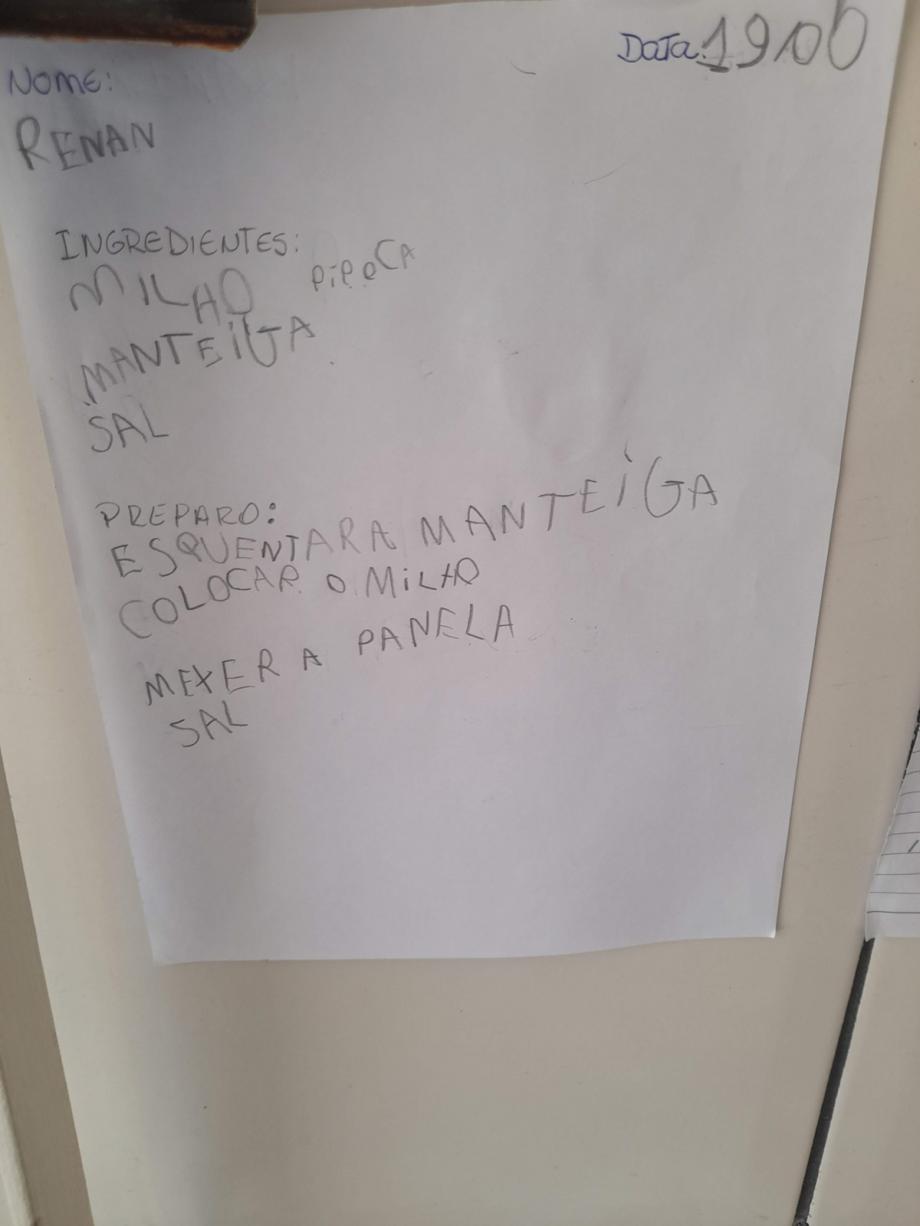 Data: 19/06
Nome:
RENAN
INGREDIENTES:
MILHO PiPOCA
MANTEiGA
SAL
PREPARO:
ESQUENTAR A MANTEiGA
COLOCAR O MiLHO
MEXER A PANELA
SAL